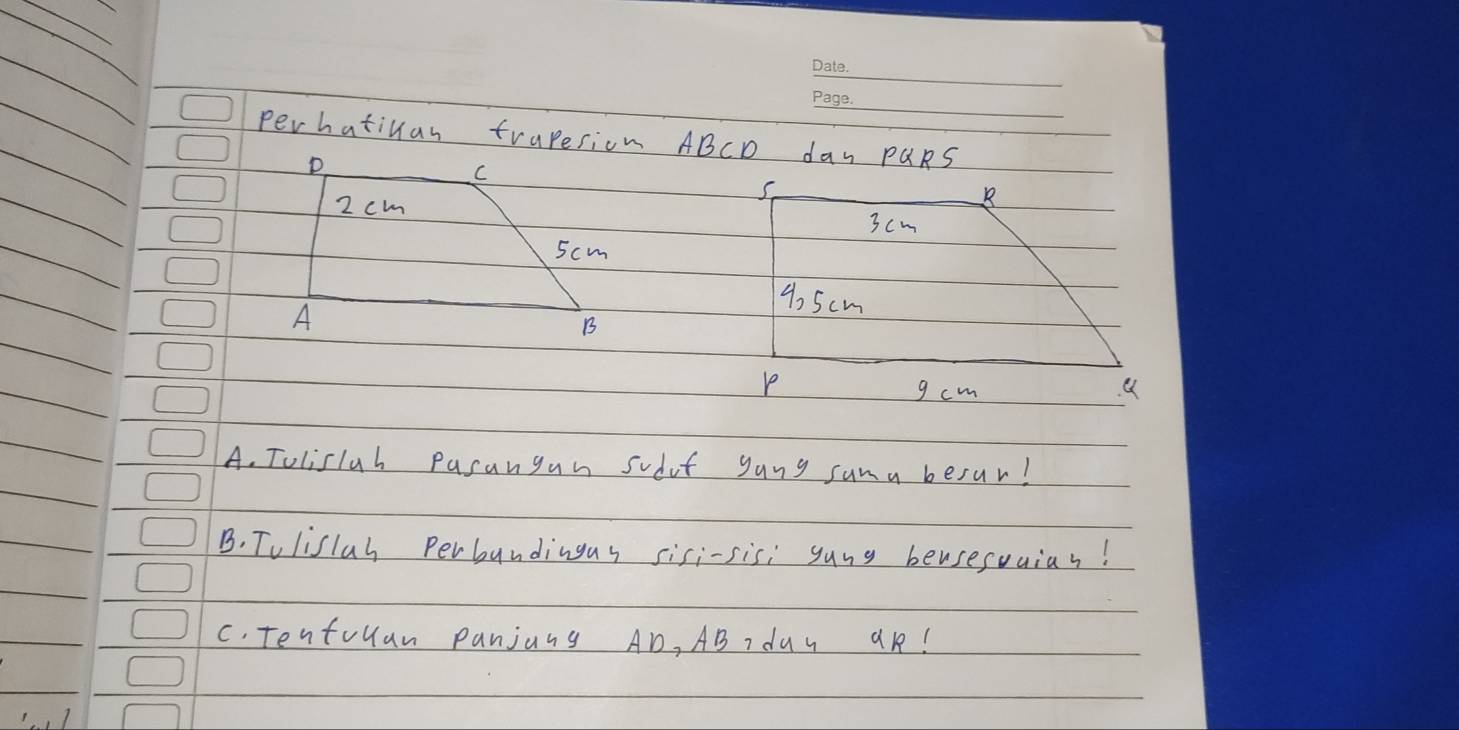 Date.
Page.
Perhatikan trapesium ABCD dan PQRS
D C S R
2 cm 3 cm
5 cm
4,5 cm
A B
P 9 cm Q
A. Tulislah Pasangan sudut yang sama besar!
B. Tulislah Perbandingan sisi-sisi yang bersesuaian!
C. Tentukan Panjang AD, AB, dan QR!